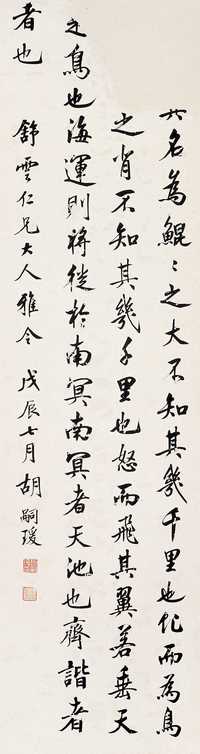 其名為鯤〻之大不知其幾千里也化而為鳥
之背不知其幾千里也怒而飛其翼若垂天
之鳥也海運則將徙於南冥南冥者天池也齊諧者
者也
舒雲仁兄大人雅令 戊辰七月胡嗣瑗